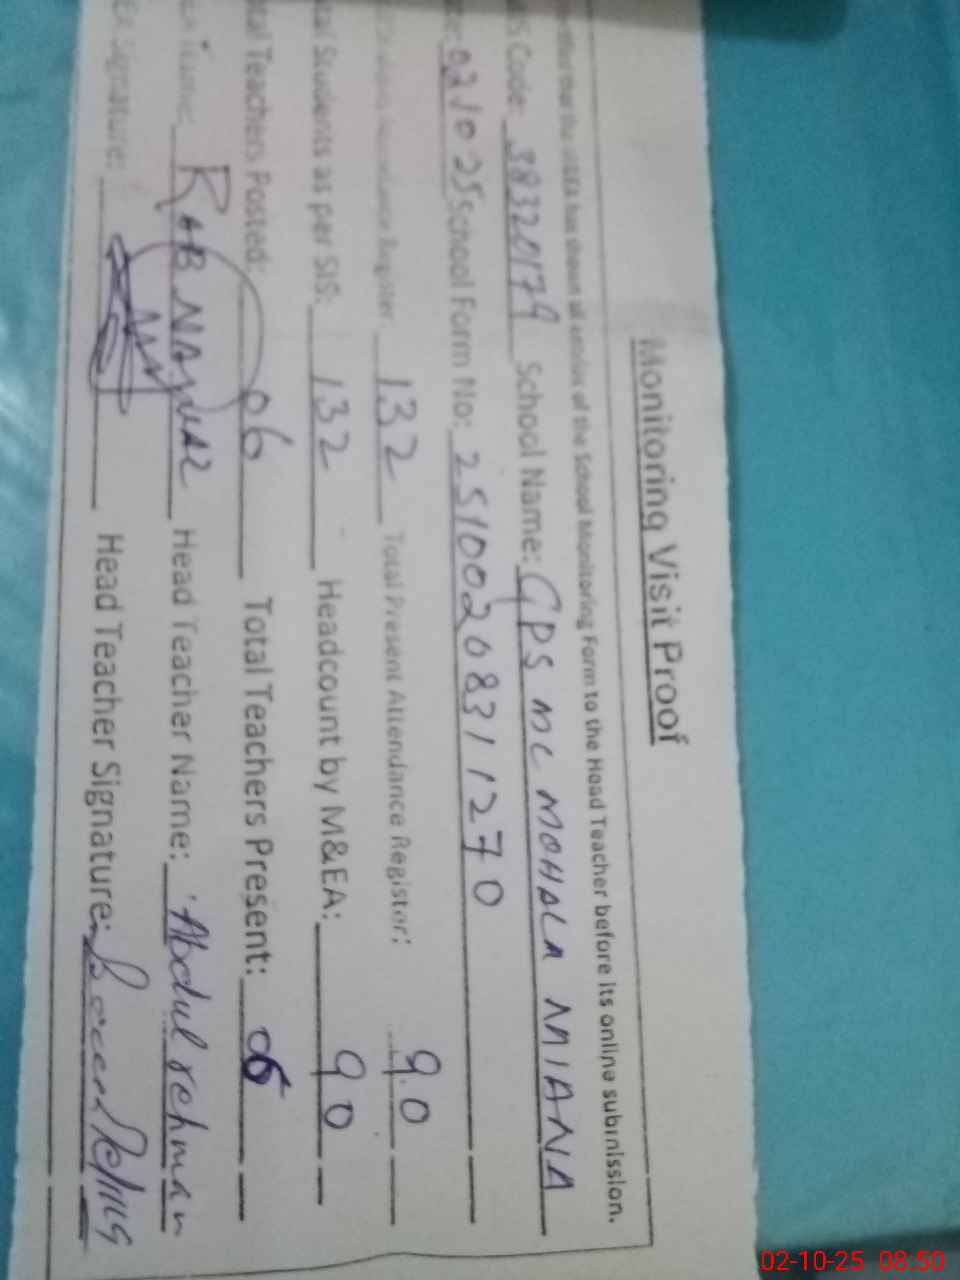 Monitoring Visit Proof
that the has shown all entries of the School Monitoring Form to the Head Teacher before its online submission.
Code: 38320179 School Name: GPS MC MOHALA MIANA
02/10 25 School Form No: 25100208311270
Register 132 Total Present Attendance Register: 90
Students as per SIS: 132 Headcount by M&EA: 90
Teachers Posted: 06 Total Teachers Present: 05
Name: RAB NAWAZ Head Teacher Name: Abdul rehman
Signature: Head Teacher Signature:
02-10-25 08:50